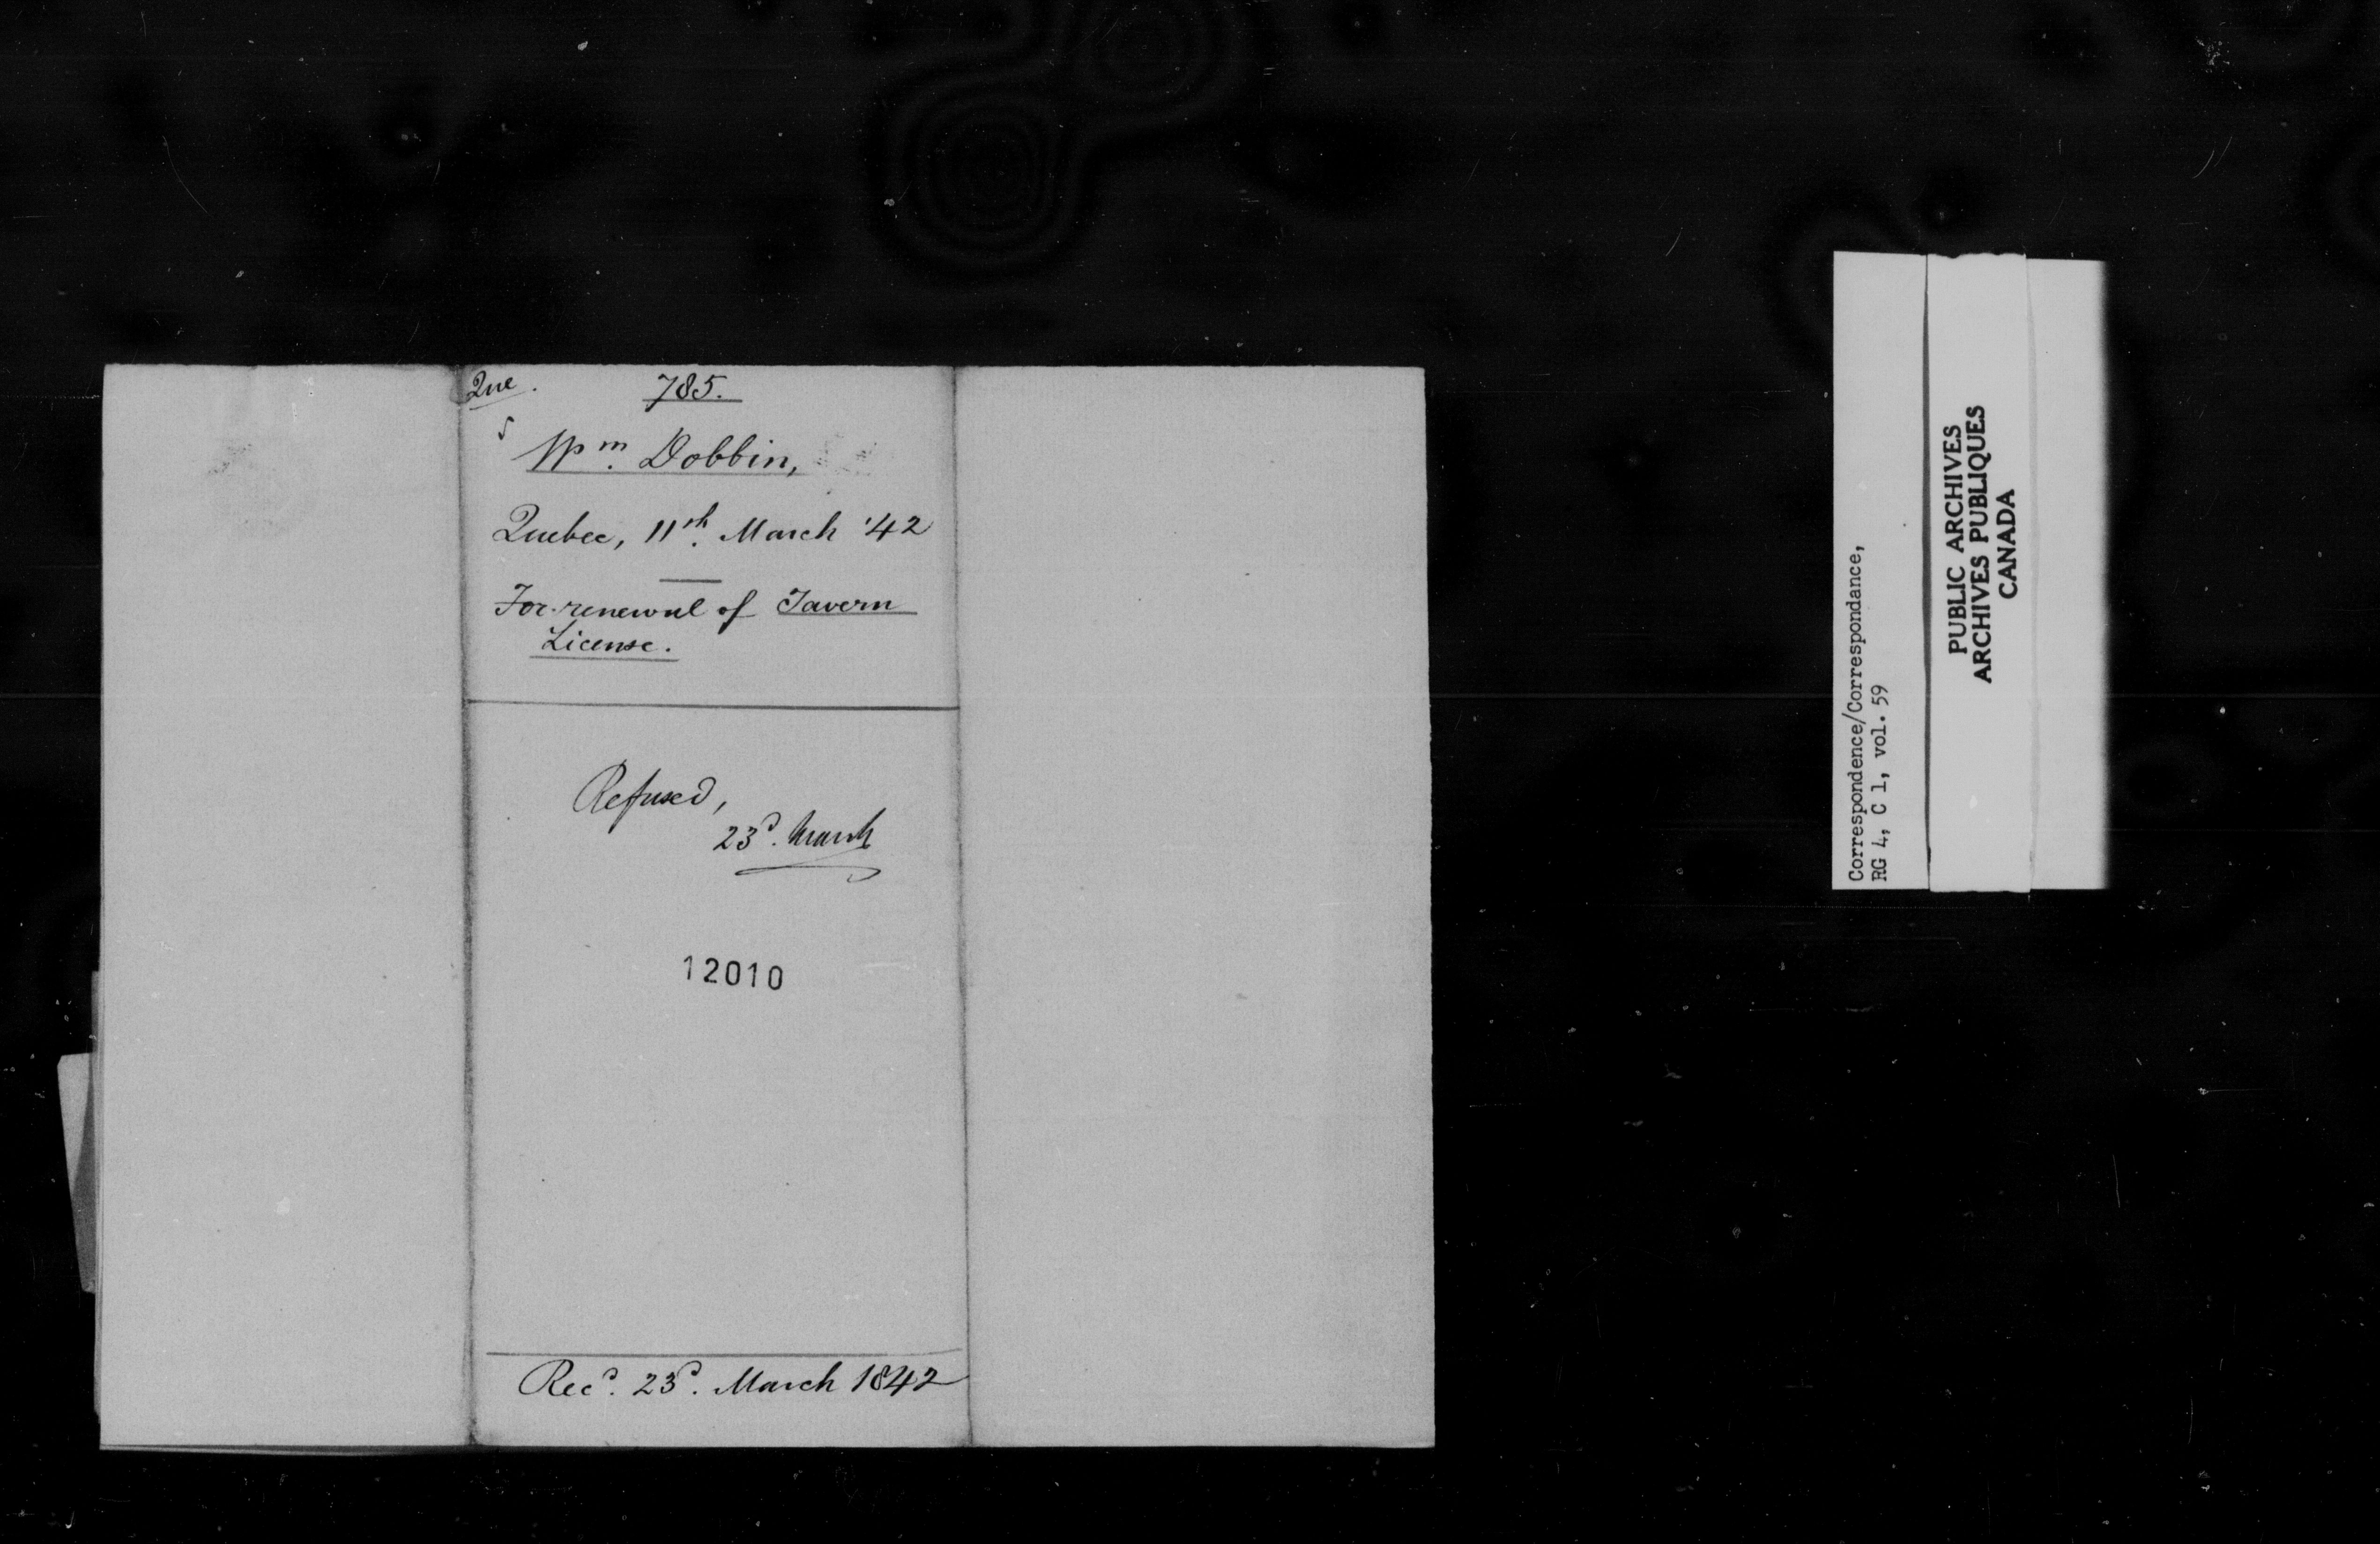 Que.
785.
Wm. Dobbin,
Quebec, 11th. March '42
For renewal of Tavern
License.
Refused,
23d. March
12010
Recd. 23d. March 1842
Correspondence/Correspondance,
RG 4, C 1, vol. 59
PUBLIC ARCHIVES
ARCHIVES PUBLIQUES
CANADA